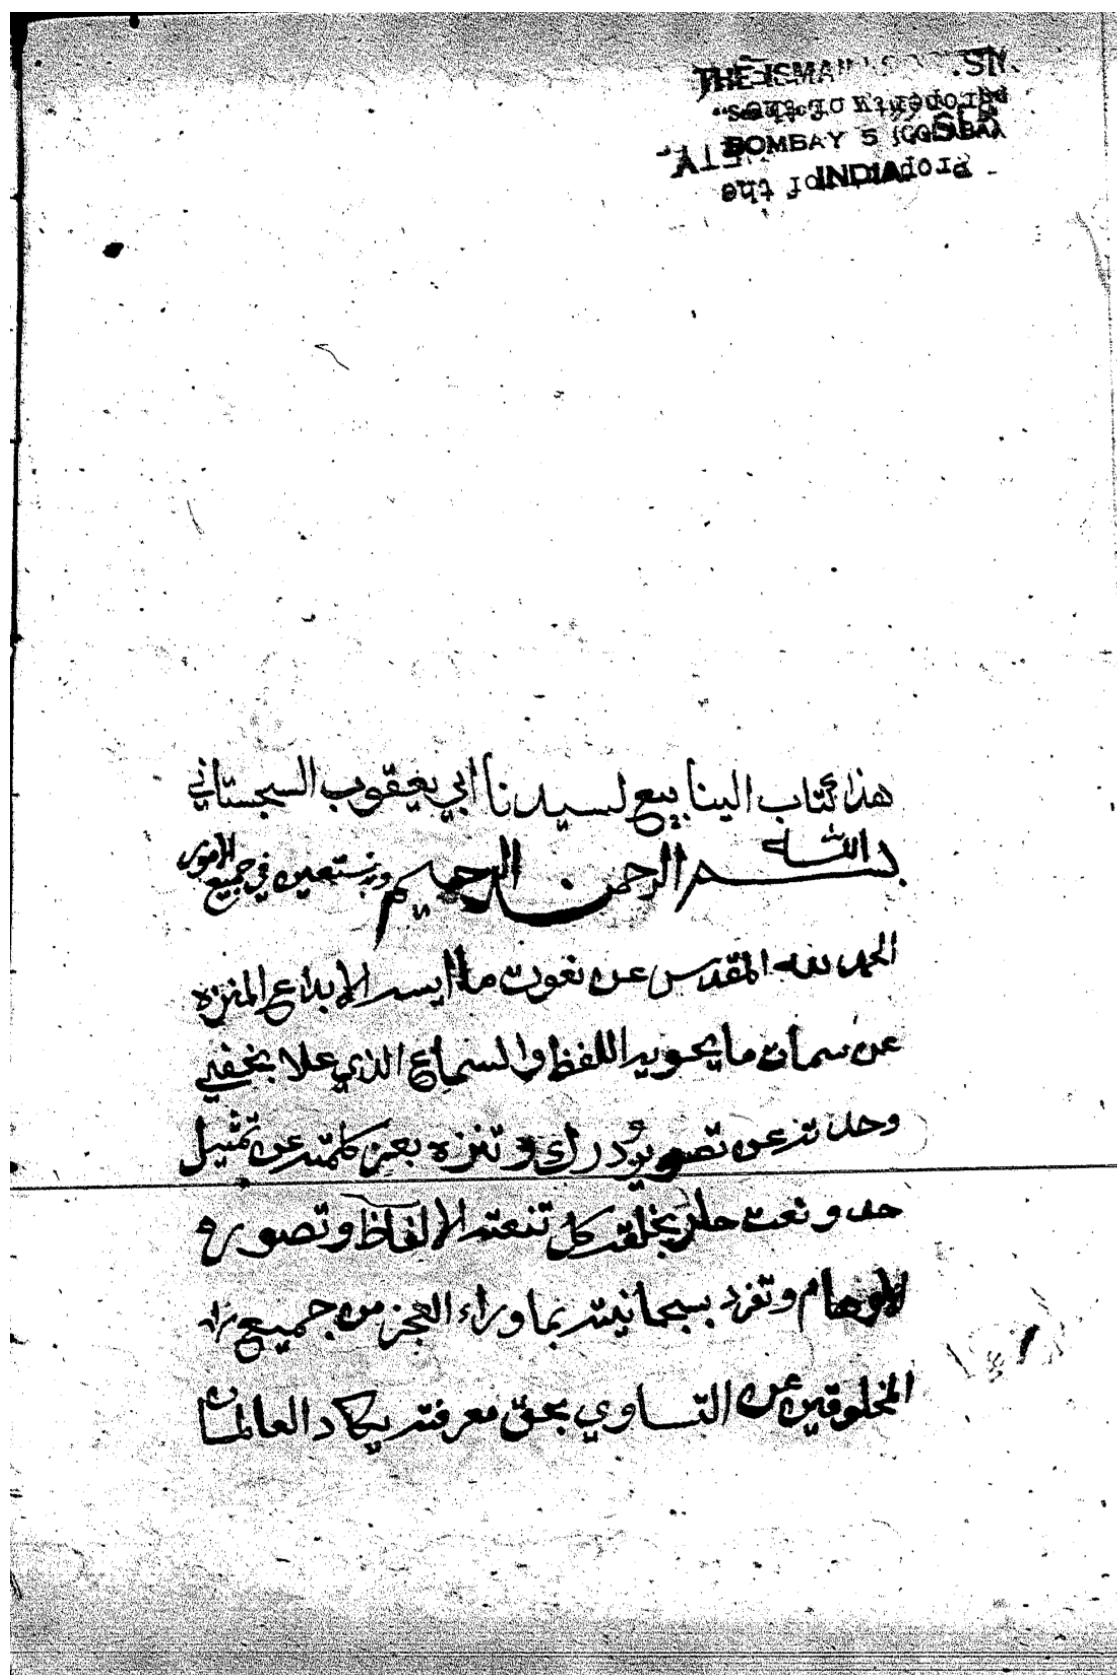 THE ISMAILI
Property of the
BOMBAY 5
INDIA
Property of the
هذا كتاب الينابيع لسيدنا أبي يعقوب السجستاني
بسم الله الرحمن الرحيم وبه نستعين في جميع الأمور
الحمد لله المقدس عن نعوت ما ايسه الإبداع المنزه
عن سمات ما يحويه اللفظ والسماع الذي علا
وحد تنزعن تصوير درك وتنزه كلمته عن تمثيل
حد ونعت بخلقه كل تنعته الالفاظ وتصوره
الاوهام وتفرد بسبحانيته بما وراء العجز من جميع
المخلوقين عن التساوي بحق معرفته يكاد العالمان